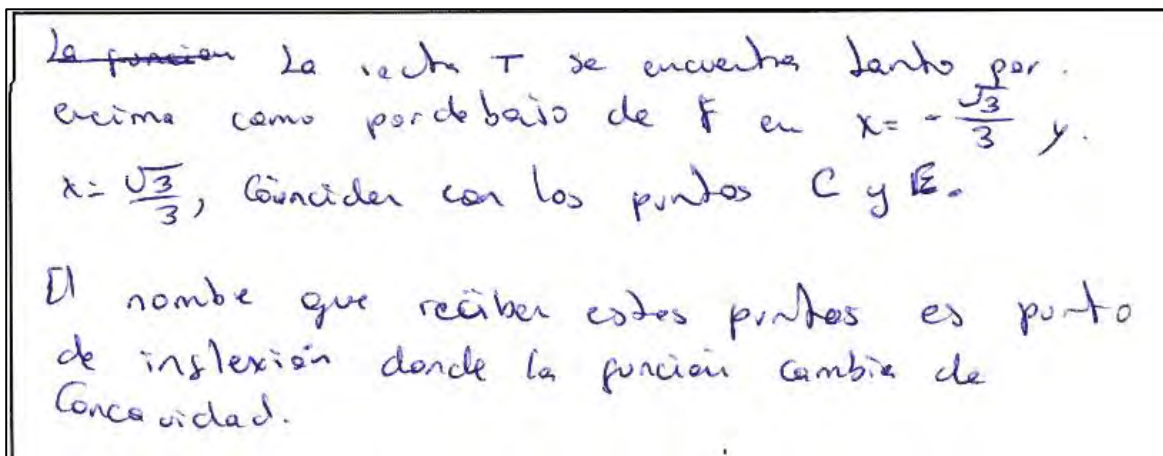 La funcion La recta T se encuentra tanto por
encima como por debajo de F en x = -√3/3 y
x = √3/3, Coinciden con los puntos C y E.
El nombe que reciben estos puntos es punto
de inflexión donde la función cambia de
Concavidad.